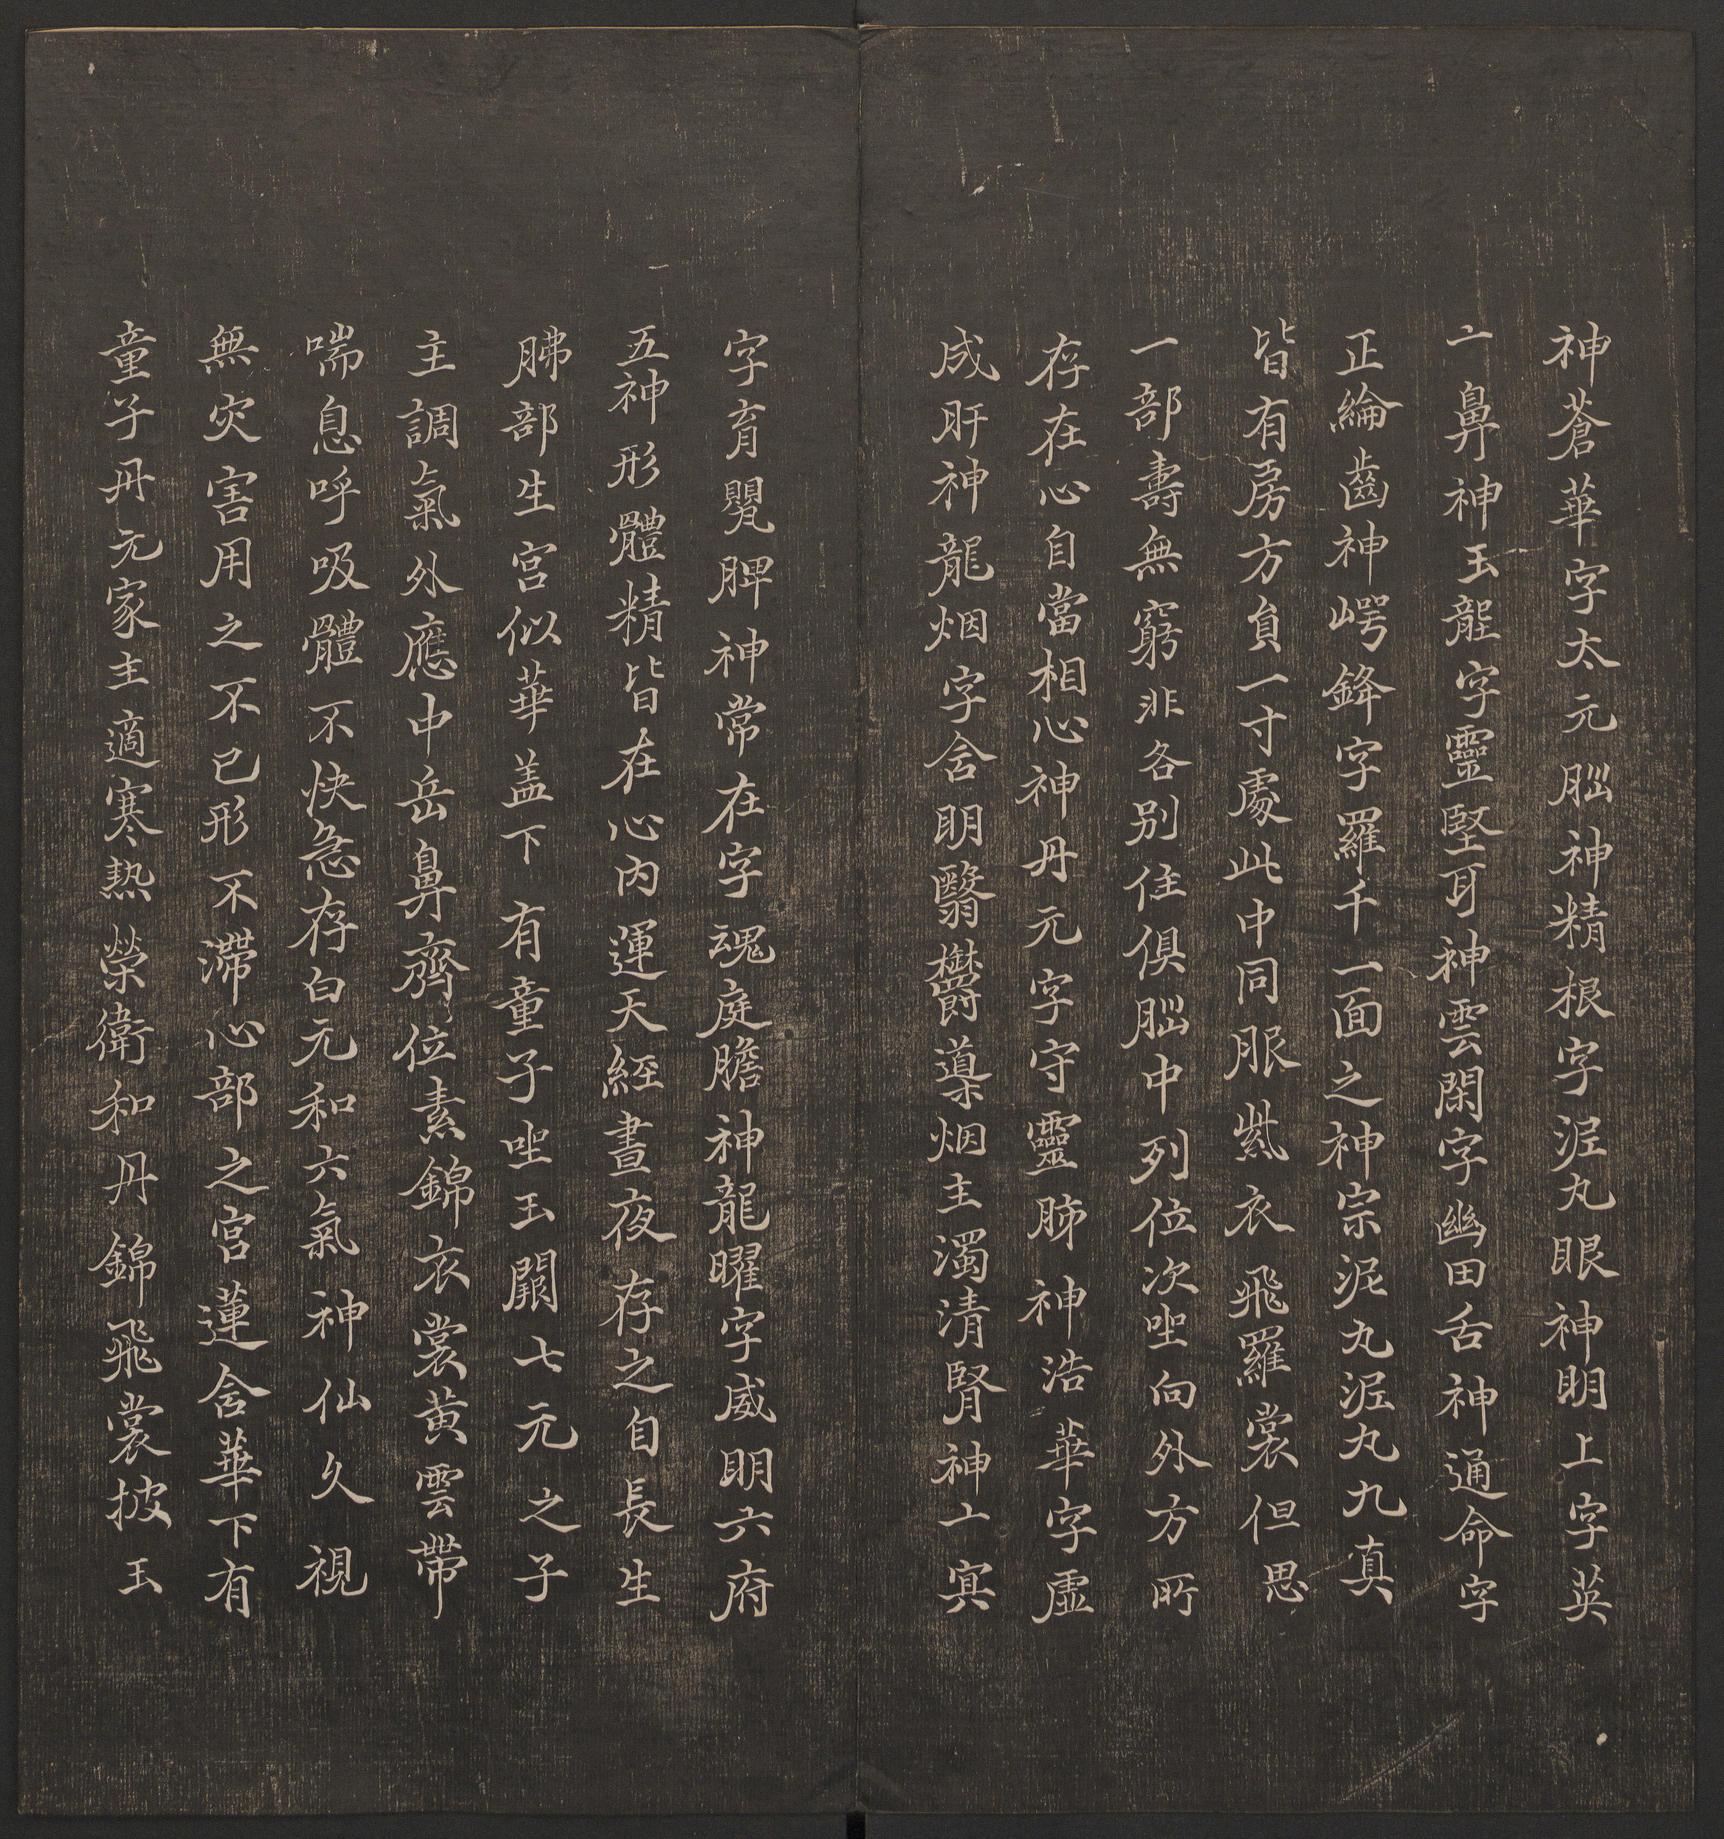 神蒼華字太元腦神精根字泥丸眼神明上字英
亠鼻神玉壟字靈堅耳神雲閑字幽田舌神通命字
正綸齒神崿鋒字羅千一面之神宗泥丸泥丸九真
皆有房方負一寸處此中同服紫衣飛羅裳但思
一部壽無窮非各别住俱腦中列位次坐向外方所
存在心自當相心神丹元字守靈肺神浩華字虛
成肝神龍烟字含明翳欝導烟主濁清腎神亠冥
字育嬰脾神常在字魂庭膽神龍曜字威明六府
五神形體精皆在心内運天經晝夜存之自長生
胏部生宫似華盖下有童子坐玉闕七元之子
主調氣外應中岳鼻齊位素錦衣裳黄雲帶
喘息呼吸體不快急存白元和六氣神仙久視
無灾害用之不已形不滯心部之宫蓮含華下有
童子丹元家主適寒熱榮衛和丹錦飛裳披玉